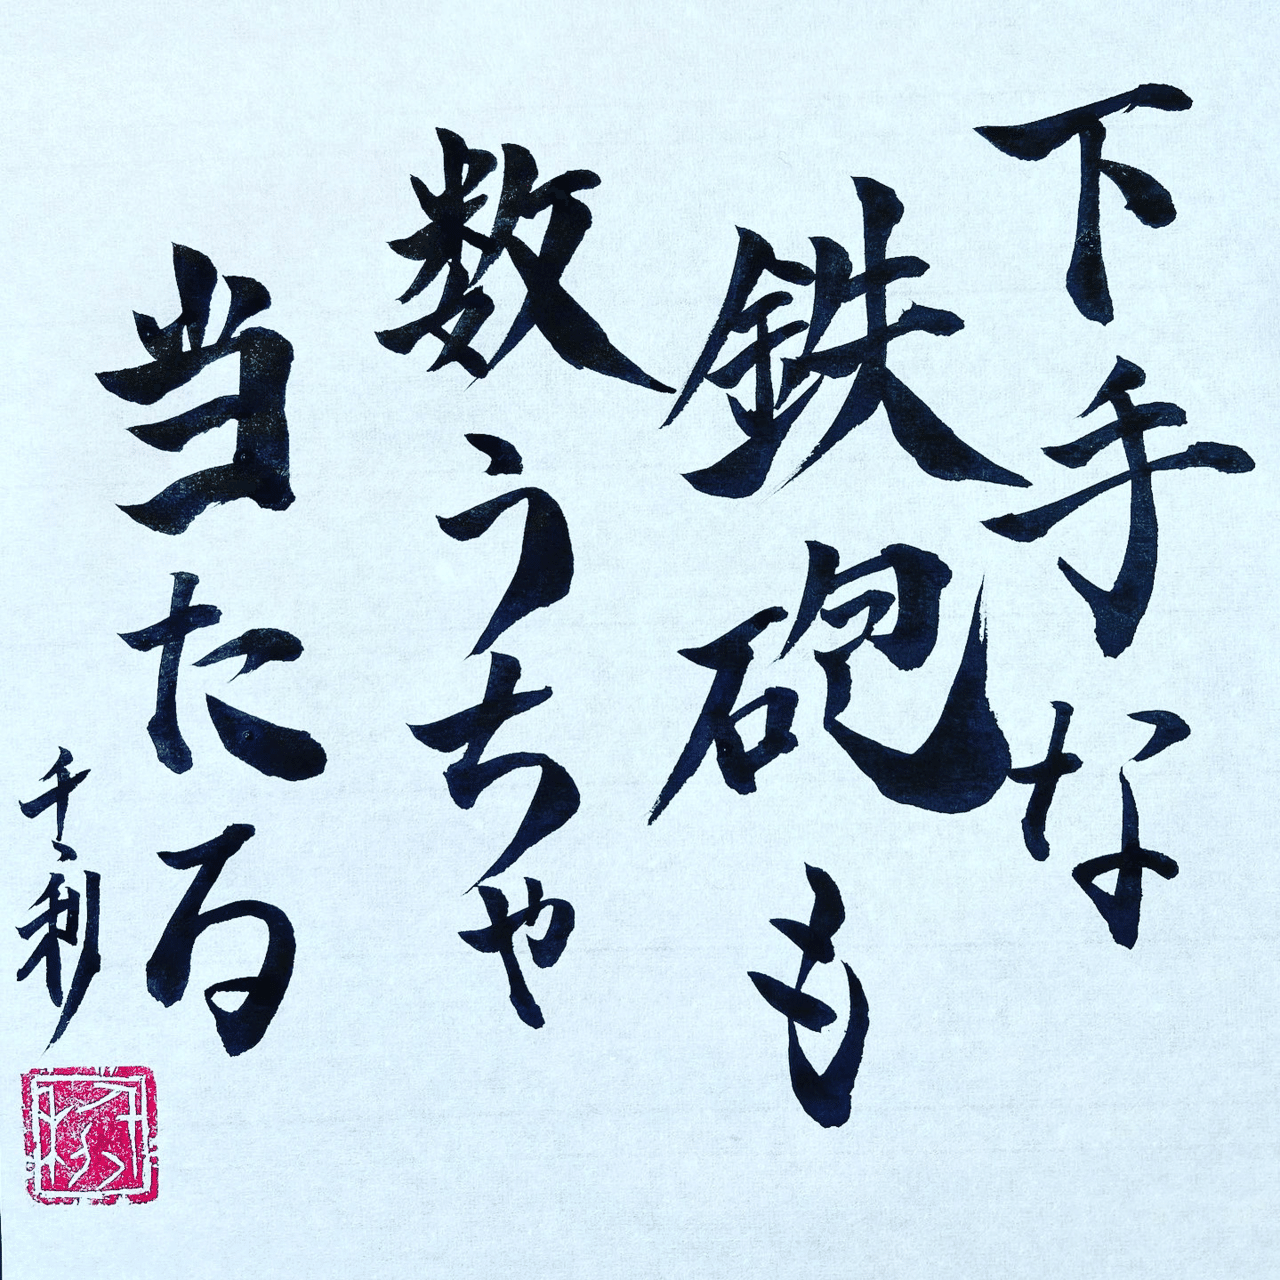 下手な
鉄砲も
数うちゃ
当たる
千利